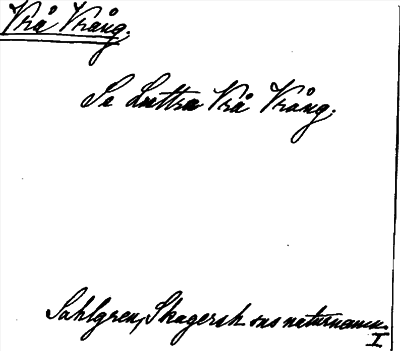 Vrå Vrång.
Se Luttra Vrå Vrång.
Sahlgren, Skagersh sns naturnamn
I